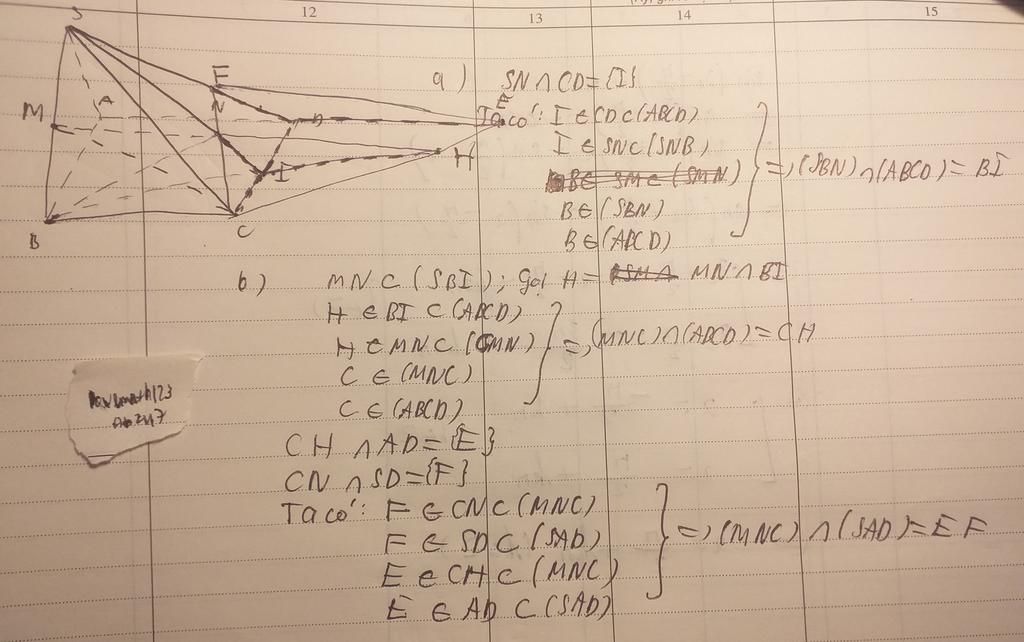 12
13
14
15
S
F
E
M
A
N
D
H
I
B
C
a) SN ∩ CD = {I}
Ta có: I ∈ CD ⊂ (ABCD)
I ∈ SN ⊂ (SNB)
B ∈ (SBN)
B ∈ (ABCD)
=> (SBN) ∩ (ABCD) = BI
b) MN ⊂ (SBI); gọi H = MN ∩ BI
H ∈ BI ⊂ (ABCD)
H ∈ MN ⊂ (CMN)
C ∈ (MNC)
C ∈ (ABCD)
=> (MNC) ∩ (ABCD) = CH
CH ∩ AD = {E}
CN ∩ SD = {F}
Ta có: F ∈ CN ⊂ (MNC)
F ∈ SD ⊂ (SAD)
E ∈ CH ⊂ (MNC)
E ∈ AD ⊂ (SAD)
=> (MNC) ∩ (SAD) = EF